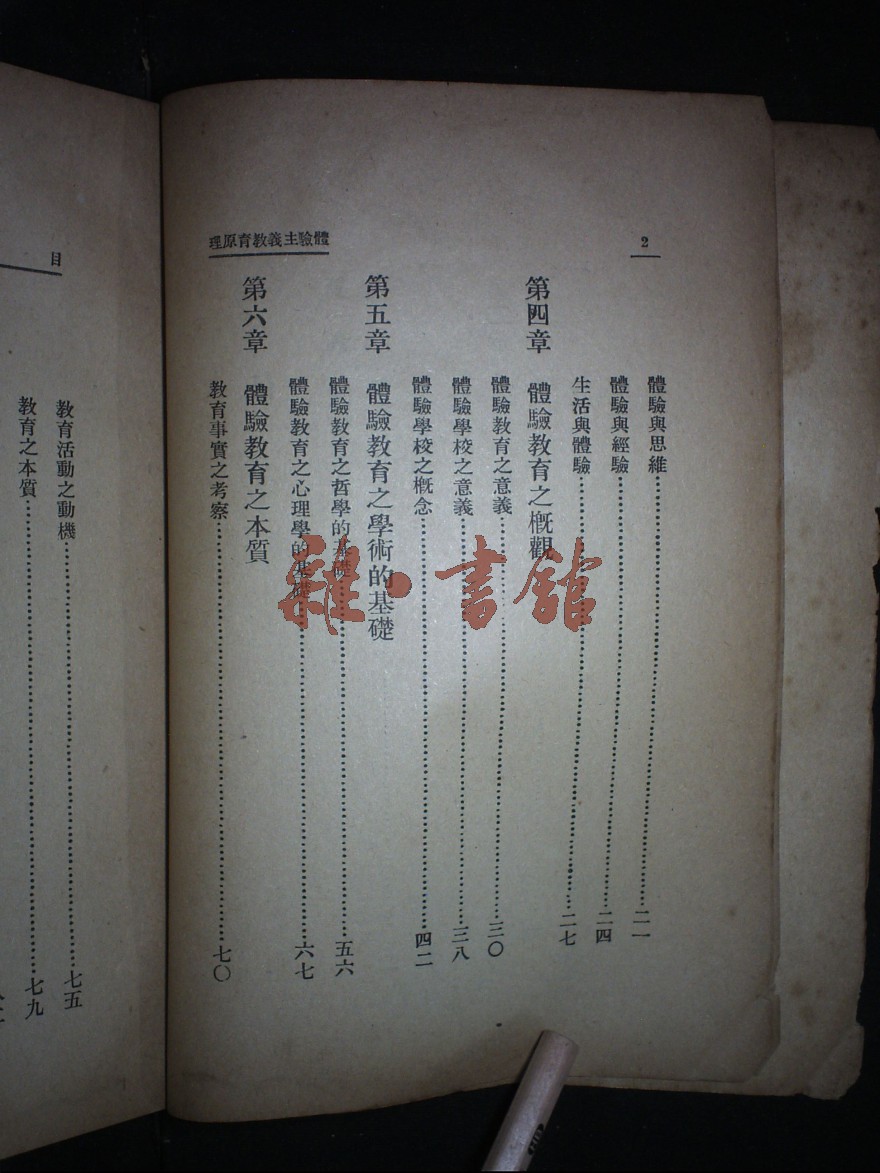 2
體驗主義教育原理
體驗與思維……二一
體驗與經驗……二四
生活與體驗……二七
第四章 體驗教育之概觀
體驗教育之意義……三〇
體驗學校之意義……三八
體驗學校之概念……四二
第五章 體驗教育之學術的基礎
體驗教育之哲學的基礎……五六
體驗教育之心理學的基礎……六七
第六章 體驗教育之本質
教育事實之考察……七〇
目
教育活動之動機……七五
教育之本質……七九
雜·書館